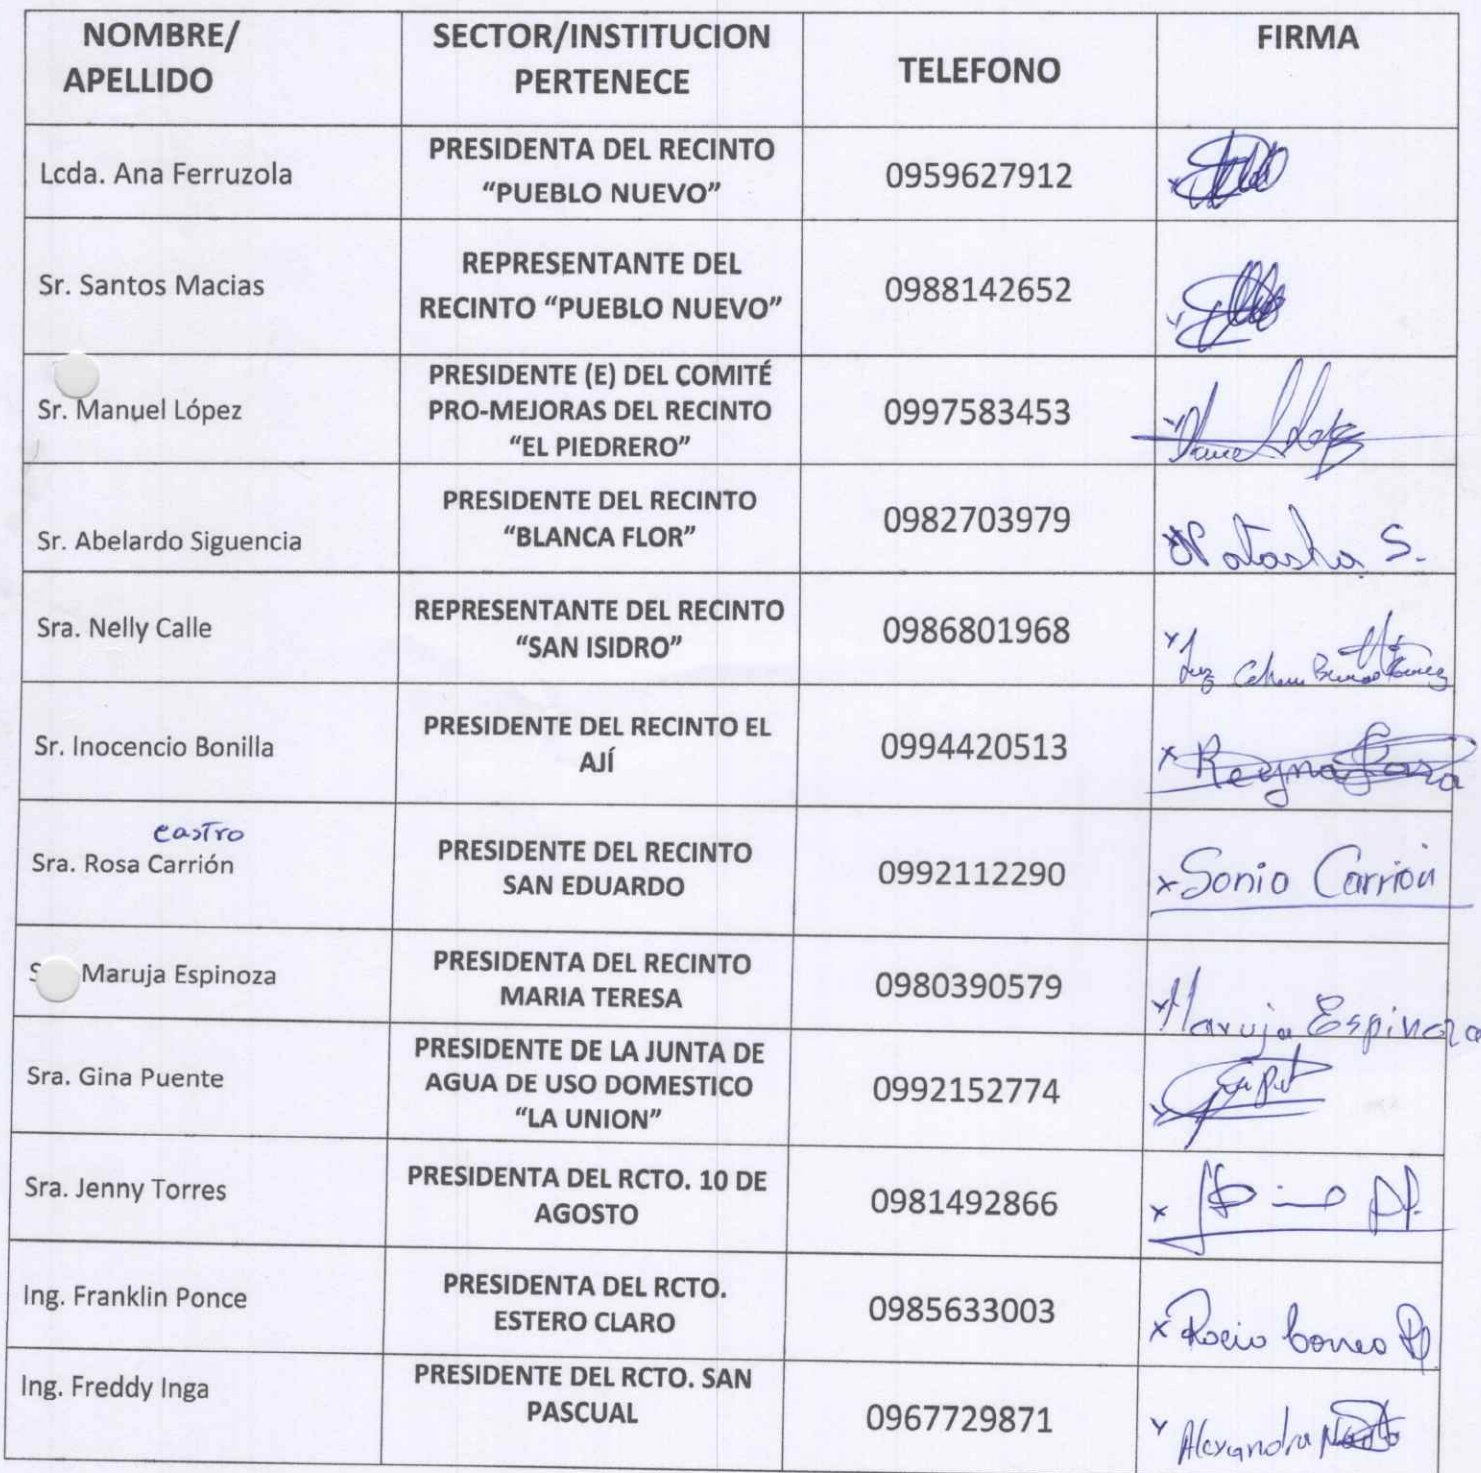 NOMBRE/
APELLIDO
SECTOR/INSTITUCION
PERTENECE
TELEFONO
FIRMA
Lcda. Ana Ferruzola
PRESIDENTA DEL RECINTO
“PUEBLO NUEVO”
0959627912
Sr. Santos Macias
REPRESENTANTE DEL
RECINTO “PUEBLO NUEVO”
0988142652
Sr. Manuel López
PRESIDENTE (E) DEL COMITÉ
PRO-MEJORAS DEL RECINTO
“EL PIEDRERO”
0997583453
Sr. Abelardo Siguencia
PRESIDENTE DEL RECINTO
“BLANCA FLOR”
0982703979
Natasha S.
Sra. Nelly Calle
REPRESENTANTE DEL RECINTO
“SAN ISIDRO”
0986801968
Sr. Inocencio Bonilla
PRESIDENTE DEL RECINTO EL
AJÍ
0994420513
x Reyna
castro
Sra. Rosa Carrión
PRESIDENTE DEL RECINTO
SAN EDUARDO
0992112290
x Sonia Carrión
Maruja Espinoza
PRESIDENTA DEL RECINTO
MARIA TERESA
0980390579
x Maruja Espinoza
Sra. Gina Puente
PRESIDENTE DE LA JUNTA DE
AGUA DE USO DOMESTICO
“LA UNION”
0992152774
Sra. Jenny Torres
PRESIDENTA DEL RCTO. 10 DE
AGOSTO
0981492866
x
Ing. Franklin Ponce
PRESIDENTA DEL RCTO.
ESTERO CLARO
0985633003
x Rocio
Ing. Freddy Inga
PRESIDENTE DEL RCTO. SAN
PASCUAL
0967729871
Alexandra